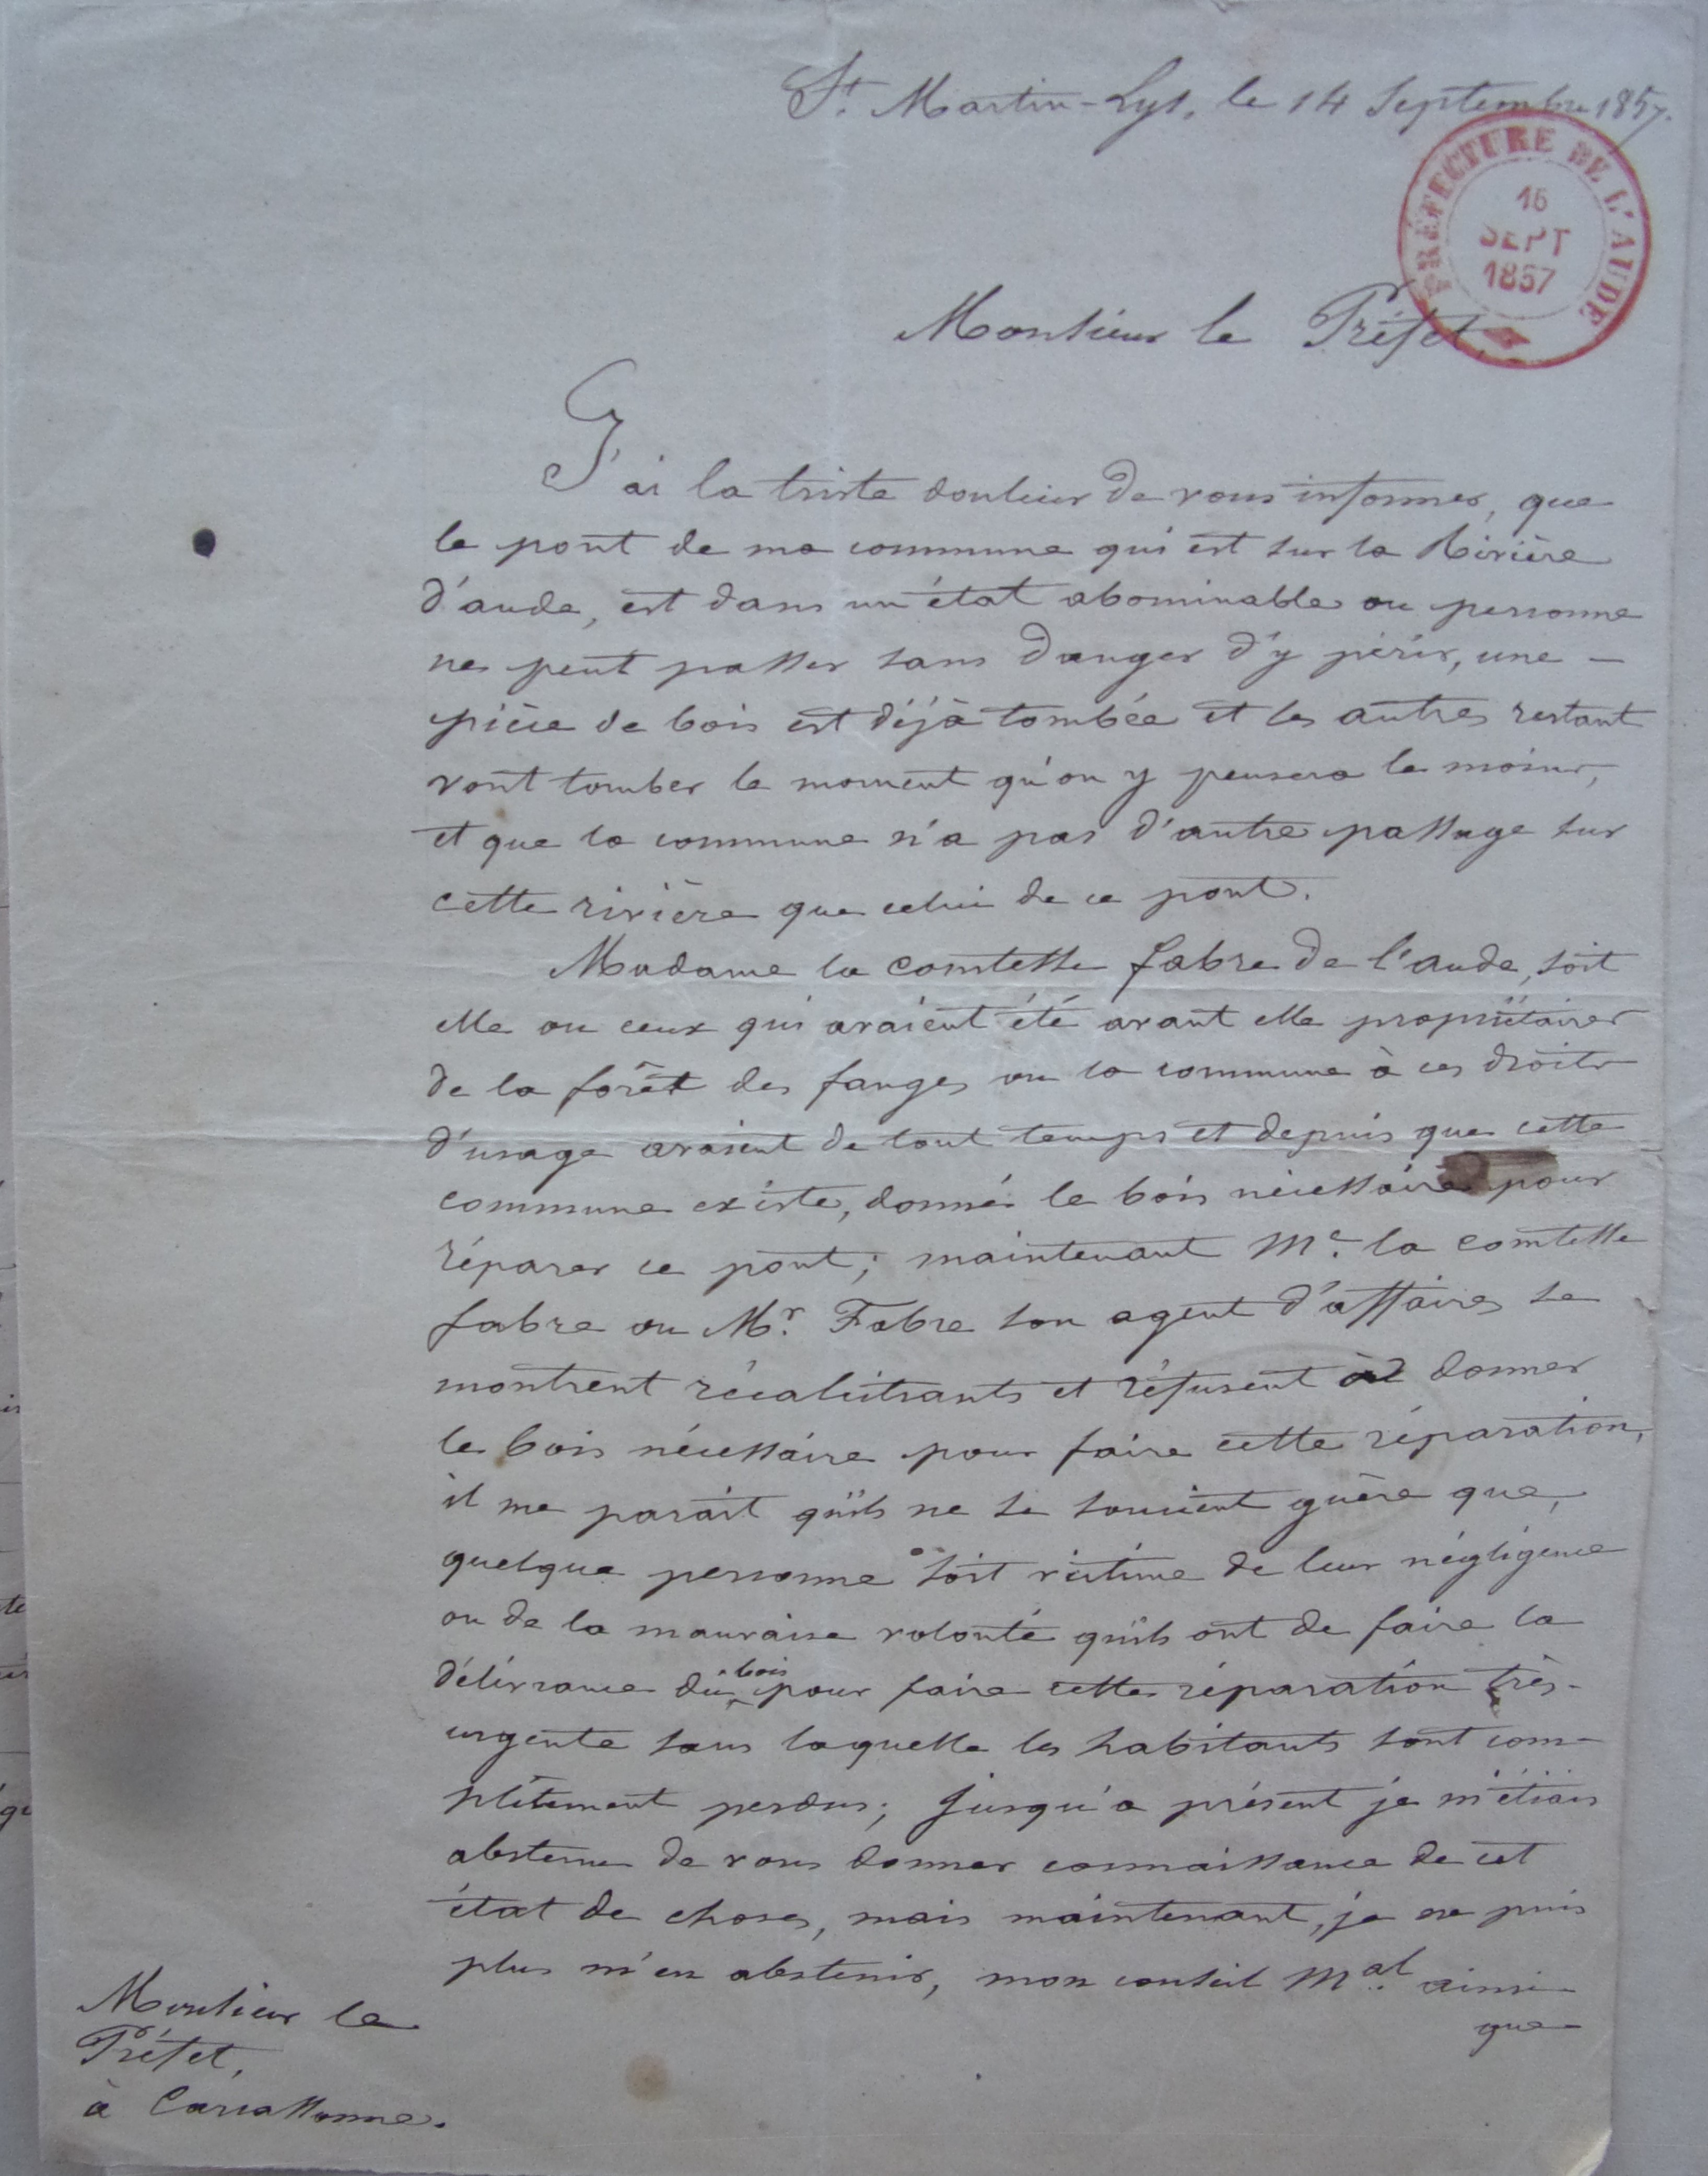 St. Martin-Lys, le 14 Septembre 1857.
PRÉFECTURE DE L'AUDE
16
SEPT
1857
Monsieur le Préfet,
J'ai la triste douleur de vous informer, que
le pont de ma commune qui est sur la Rivière
d'aude, est dans un état abominable ou personne
ne peut passer sans danger d'y périr, une -
pièce de bois est déjà tombée et les autres restant
vont tomber le moment qu'on y pensera le moins,
et que la commune n'a pas d'autre passage sur
cette rivière que celui de ce pont.
Madame la comtesse fabre de l'aude, soit
elle ou ceux qui avaient été avant elle propriétaires
de la forêt des fanges ou la commune à ces droits
d'usage avaient de tout temps et depuis que cette
commune existe, donné le bois nécessaire pour
réparer ce pont; maintenant Me. la comtesse
fabre ou Mr. Fabre son agent d'affaires se
montrent récalcitrants et réfusent à donner
le bois nécessaire pour faire cette réparation,
il me parait qu'ils ne se soucient guère que,
quelque personne soit victime de leur négligence
ou de la mauvaise volonté qu'ils ont de faire la
délivrance du bois pour faire cette réparation très-
urgente sans laquelle les habitants sont com-
plètement perdus; jusqu'a présent je m'étiais
abstenu de vous donner connaissance de cet
état de choses, mais maintenant, je ne puis
plus m'en abstenir, mon conseil Mal. ainsi
que
Monsieur le
Préfet,
à Carcassonne.